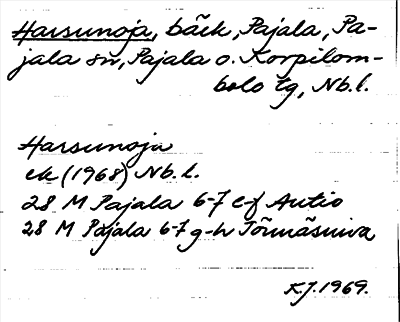 Harsunoja, bäck, Pajala, Pa-
jala sn, Pajala o. Korpilom-
bolo tg, Nb.l.
Harsunoja
ek (1968) Nb.l.
28 M Pajala 6-7 e-f Autio
28 M Pajala 6-7 g-h Jõmäsuiva
K.J. 1969.